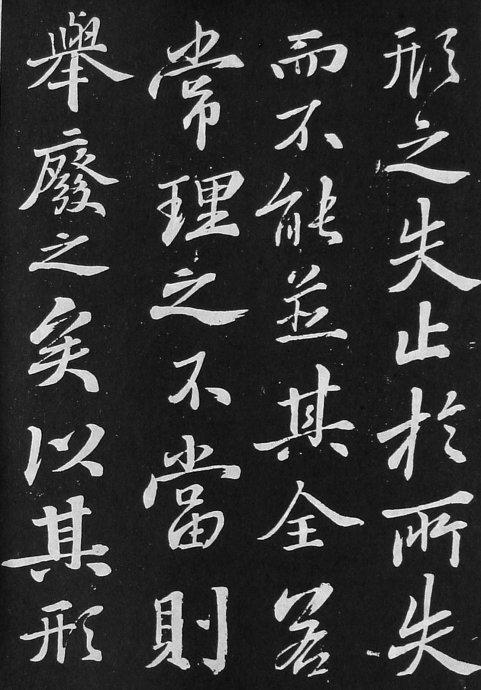 形之失止於所失
而不能並其全若
常理之不當則
舉廢之矣以其形